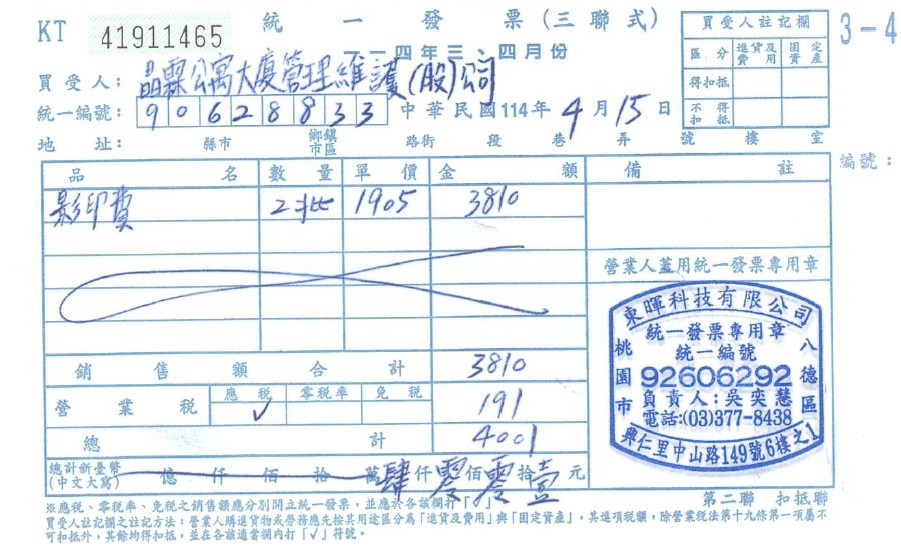 KT 41911465 統一發票(三聯式) 3-4
一一四年三、四月份
買受人：晶霖公寓大廈管理維護(股)公司
統一編號：90628833 中華民國114年4月15日
地址： 縣市 鄉鎮市區 路街 段 巷 弄 號 樓 室
買受人註記欄
區分 進貨及費用 固定資產
得扣抵
不得扣抵
編號：
品名 數量 單價 金額 備註
影印費 2批 1905 3810
營業人蓋用統一發票專用章
銷售額合計 3810
營業稅 應稅 ✓ 零稅率 免稅 191
總計 4001
總計新臺幣(中文大寫) 億 仟 佰 拾 萬 肆仟 零佰 零拾 壹元
東暉科技有限公司
統一發票專用章
統一編號
92606292
負責人：吳奕慧
電話:(03)377-8438
桃園市八德區
興仁里中山路149號6樓之1
第二聯 扣抵聯
※應稅、零稅率、免稅之銷售額應分別開立統一發票，並應於各該欄打「✓」。
買受人註記欄之註記方法：營業人購進貨物或勞務應先按其用途區分為「進貨及費用」與「固定資產」，其進項稅額，除營業稅法第十九條第一項屬不
可扣抵外，其餘均得扣抵，並在各該適當欄內打「✓」符號。